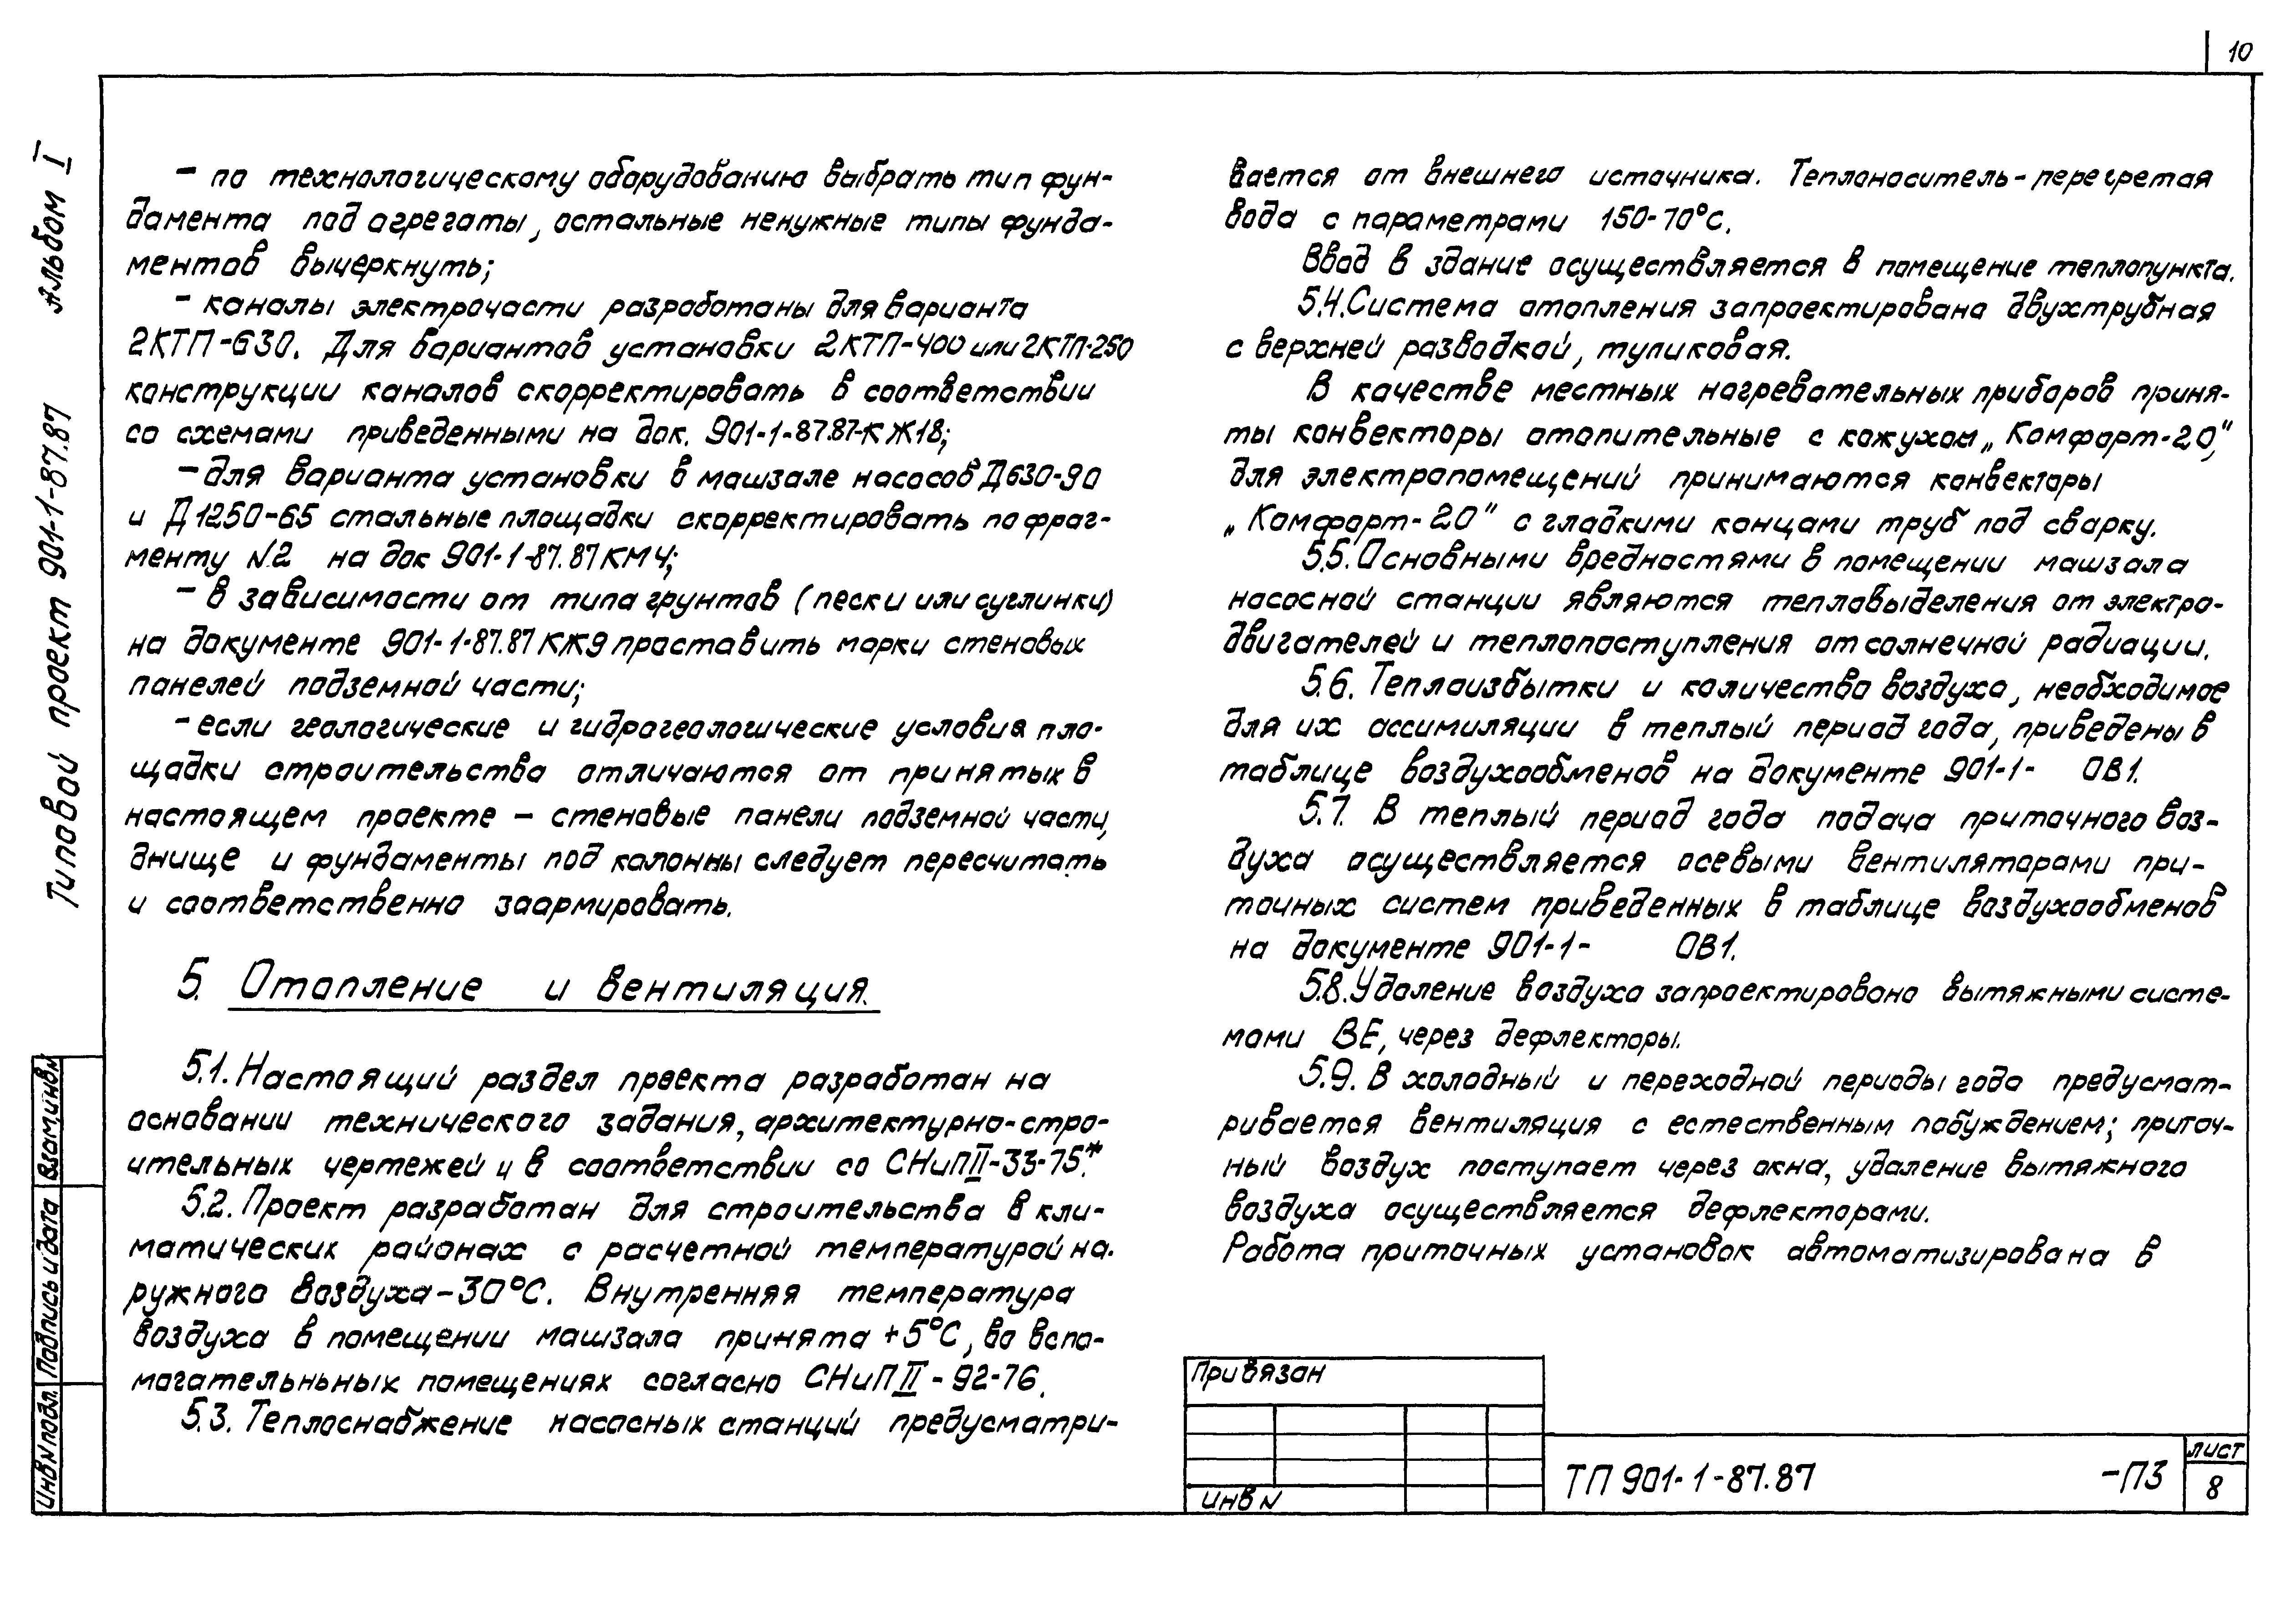 10
Альбом I
Типовой проект 901-1-87.87
– по технологическому оборудованию выбрать тип фун-
дамента под агрегаты, остальные ненужные типы фунда-
ментов вычеркнуть;
– каналы электрочасти разработаны для варианта
2КТП-630. Для вариантов установки 2КТП-400 или 2КТП-250
конструкции каналов скорректировать в соответствии
со схемами приведенными на док. 901-1-87.87-КЖ18;
– для варианта установки в машзале насосов Д630-90
и Д1250-65 стальные площадки скорректировать по фраг-
менту N2 на док 901-1-87.87 КМ4;
– в зависимости от типа грунтов (пески или суглинки)
на документе 901-1-87.87 КЖ9 проставить марки стеновых
панелей подземной части;
– если геологические и гидрогеологические условия пло-
щадки строительства отличаются от принятых в
настоящем проекте – стеновые панели подземной части,
днище и фундаменты под колонны следует пересчитать
и соответственно заармировать.
5. Отопление и вентиляция.
5.1. Настоящий раздел проекта разработан на
основании технического задания, архитектурно-стро-
ительных чертежей и в соответствии со СНиП II-33-75*.
5.2. Проект разработан для строительства в кли-
матических районах с расчетной температурой на-
ружного воздуха -30°С. Внутренняя температура
воздуха в помещении машзала принята +5°С, во вспо-
могательньных помещениях согласно СНиП II-92-76.
5.3. Теплоснабжение насосных станций предусматри-
вается от внешнего источника. Теплоноситель-перегретая
вода с параметрами 150-70°С.
Ввод в здание осуществляется в помещение теплопункта.
5.4. Система отопления запроектирована двухтрубная
с верхней разводкой, тупиковая.
В качестве местных нагревательных приборов приня-
ты конвекторы отопительные с кожухом „Комфорт-20",
для электропомещений принимаются конвекторы
„Комфорт-20" с гладкими концами труб под сварку.
5.5. Основными вредностями в помещении машзала
насосной станции являются тепловыделения от электро-
двигателей и теплопоступления от солнечной радиации.
5.6. Теплоизбытки и количество воздуха, необходимое
для их ассимиляции в теплый период года, приведены в
таблице воздухообменов на документе 901-1- ОВ1.
5.7. В теплый период года подача приточного воз-
духа осуществляется осевыми вентиляторами при-
точных систем приведенных в таблице воздухообменов
на документе 901-1- ОВ1.
5.8. Удаление воздуха запроектировано вытяжными систе-
мами ВЕ, через дефлекторы.
5.9. В холодный и переходной периоды года предусмат-
ривается вентиляция с естественным побуждением; приточ-
ный воздух поступает через окна, удаление вытяжного
воздуха осуществляется дефлекторами.
Работа приточных установок автоматизирована в
Привязан
Инв N
ТП 901-1-87.87 -ПЗ
лист
8
Взам.инв.N
Подпись и дата
Инв N подл.